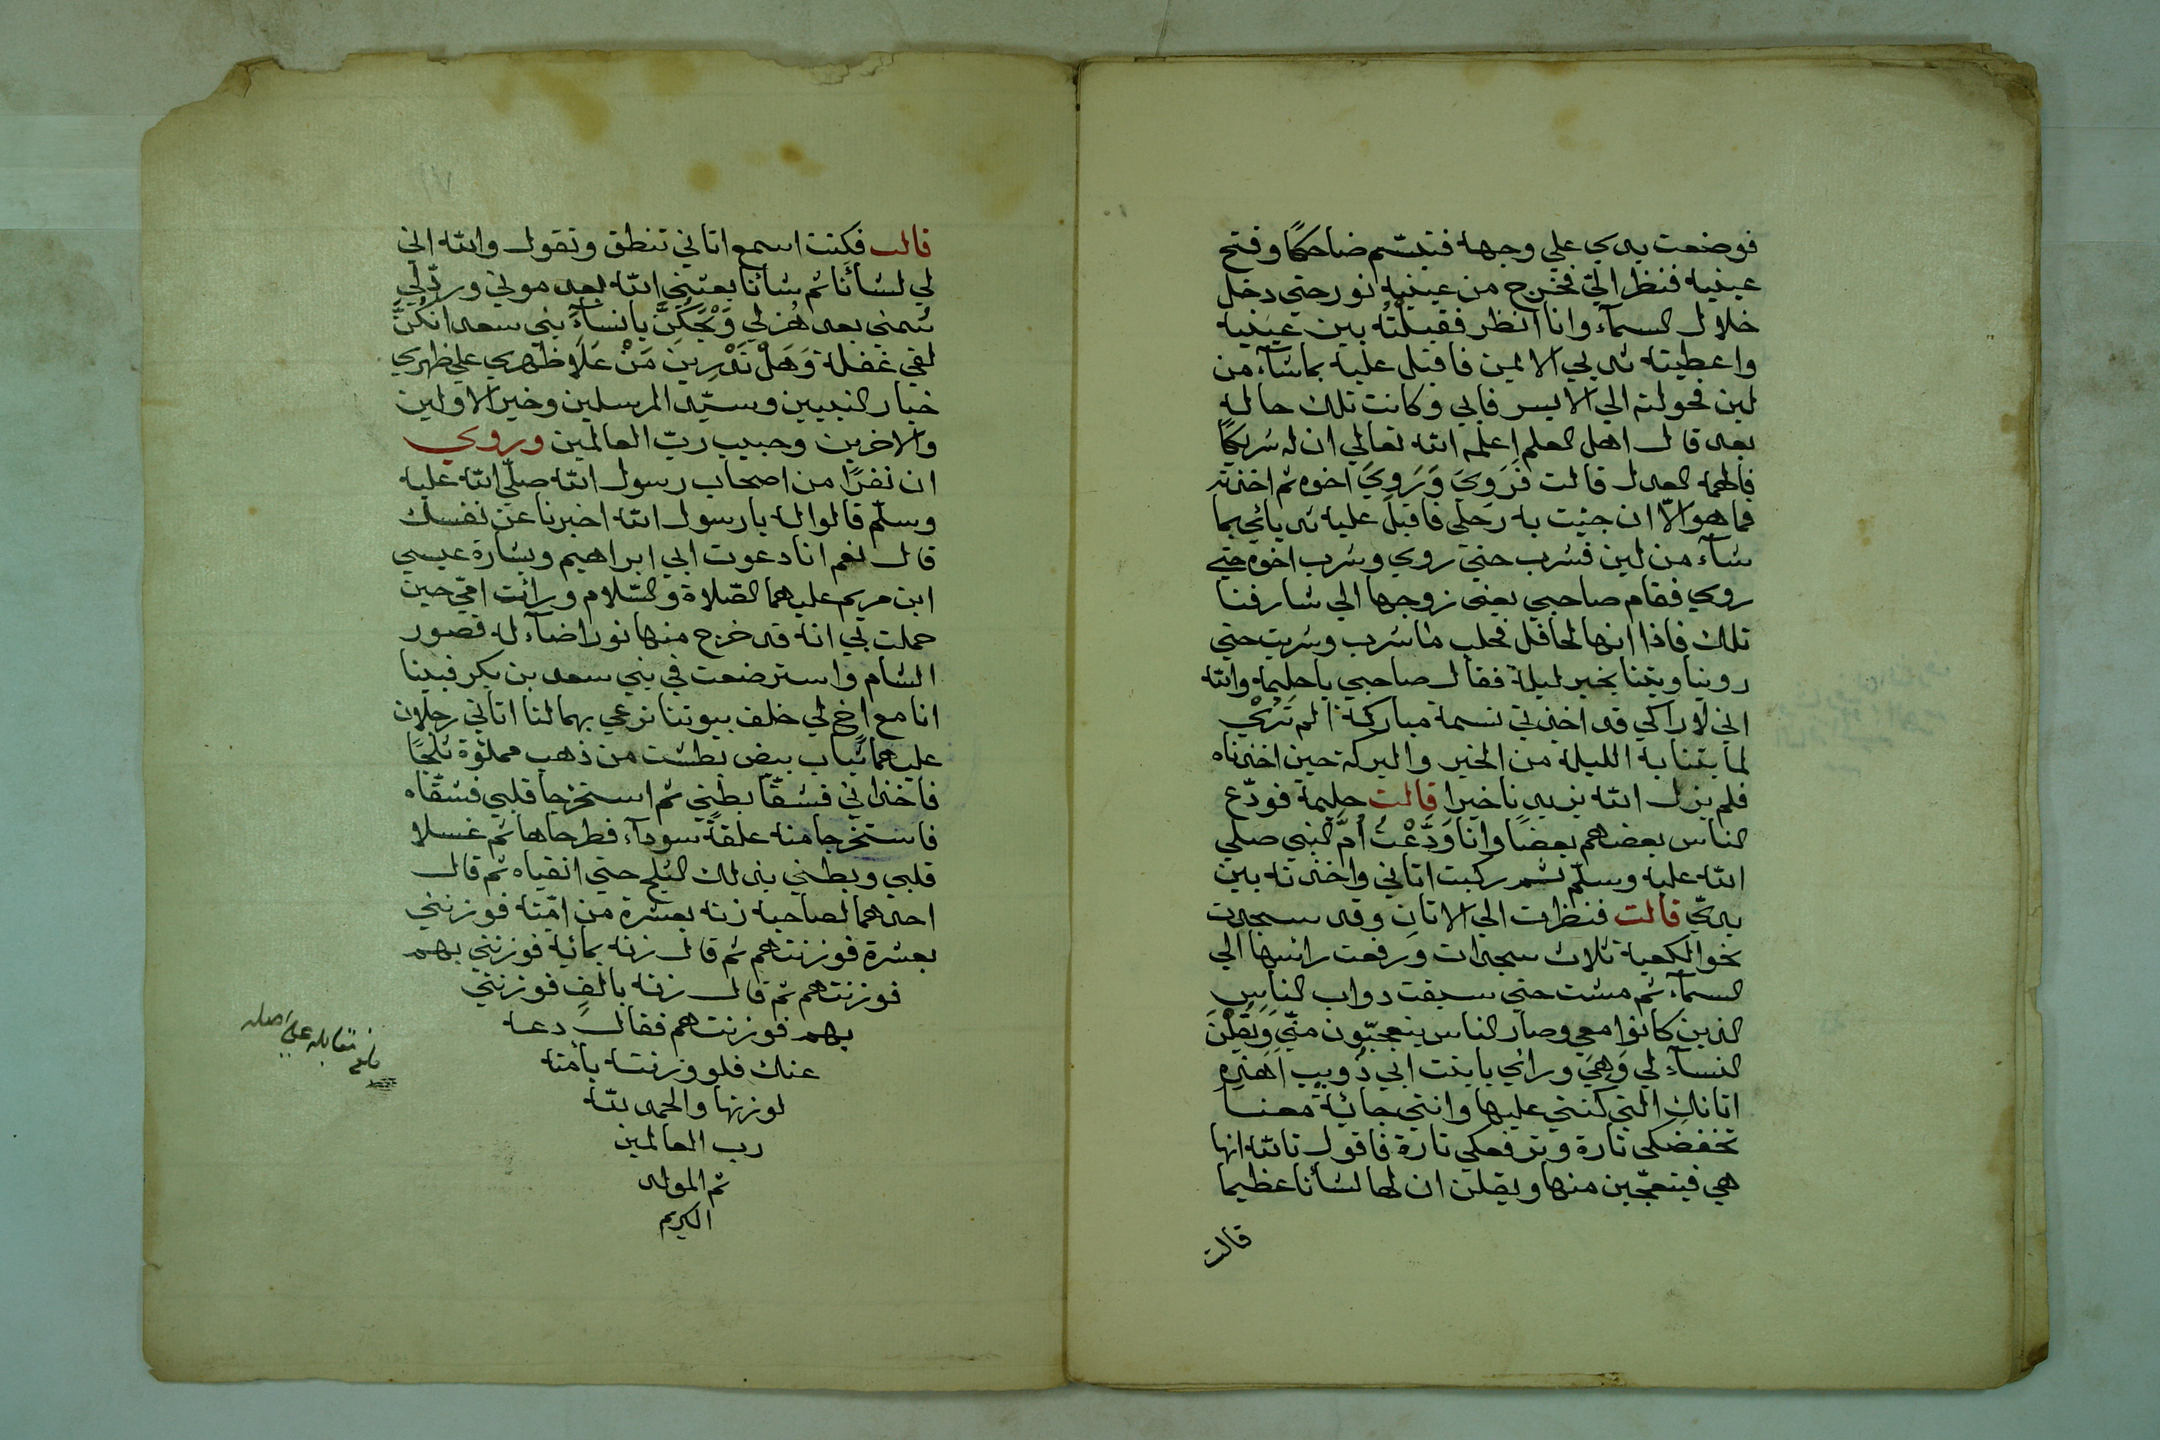 فوضعت يدي علي وجهه فتبسّم ضاحكًا وفتح
عينيه فنظر اليّ فخرج من عينيه نور حتي دخل
خلال السمآء وانا انظر فقبلتُه بين عينيه
واعطيته ثديي الايمن فاقبل عليه بماشآء من
لبن فحولته الي الايسر فابي وكانت تلك حاله
بعد قال اهل العلم اعلمه الله تعالي ان له شريكًا
فالهمه العدل قالت فَرَوِيَ وَرَوِيَ اخوه ثم اخذته
فما هو الّا ان جيت به رَحلي فاقبل عليه ثدياي بما
شآء من لبن فشرب حتي روي وشرب اخوه حتي
روي فقام صاحبي يعني زوجها الي شارفنا
تلك فاذا انها لحافل فحلب ما شرب وشربت حتي
روينا وبتنا بخير ليلة فقال صاحبي يا حليمه والله
اني لاراكي قد اخذتي نسمة مباركة الم تَرَيْ
لما بتنا به الليلة من الخير والبركة حين اخذناه
فلم يزل الله يزيدنا خيرا قالت حليمة فودّع
الناس بعضهم بعضًا وانا وَدَّعْتُ أمَّ النبي صلي
الله عليه وسلّم ثم ركبت اتاني واخذته بين
يديّ قالت فنظرت الي الاتان وقد سجدت
نحو الكعبة ثلاث سجدات ورفعت رائسها الي
السمآء ثم مشت حتي سبقت دواب الناس
الذين كانوا معي وصار الناس يتعجبّون منّي وَيَقلْنَ
النسآء لي وَهِيَ ورائي يا بنت ابي ذُويب اهذه
اتانكِ التي كنتي عليها وانتي جائية معنا
تخفضكي تارة وترفعكي تارة فاقول تالله انها
هي فيتعجّبن منها ويقلن ان لها لشأنا عظيما
قالت
قالت فكنت اسمع اتاني تنطق وتقول والله ان
لي لشأنًا ثم شأنا بعثني الله بعد موتي وردّ لي
سمني بعد هُزلي وَيْحَكُنَّ يا نسآءَ بني سعد انكُنَّ
لفي غفلة وَهَلْ تَدْرِينَ مَنْ عَلَا ظهري علي ظهري
خيار النبيين وسيّد المرسلين وخير الاولين
والاخرين وحبيب ربّ العالمين وروي
ان نفرًا من اصحاب رسول الله صلّي الله عليه
وسلّم قالوا له يا رسول الله اخبرنا عن نفسك
قال نعم انا دعوت ابي ابراهيم وبشارة عيسي
ابن مريم عليهما الصّلاة والسّلام ورائت امّي حين
حملت بي انه قد خرج منها نور اضآء له قصور
الشام واسترضعت في بني سعد بن بكر فبينا
انا مع اخ لي خلف بيوتنا نرعي بهما لنا اتاني رجلان
عليهما ثياب بيض بطشت من ذهب مملوّة ثلجًا
فاخذاني فشقّا بطني ثم استخرجا قلبي فشقّاه
فاستخرجا منه علقةً سودآء فطرحاها ثم غسلا
قلبي وبطني بذلك الثلج حتي انقياه ثم قال
احدهما لصاحبه زنه بعشرة من امّته فوزنني
بعشرة فوزنتهم ثم قال زنه بمائة فوزنني بهم
فوزنتهم ثم قال زنه بالفٍ فوزنني
بهم فوزنتهم فقال دعه
عنك فلو وزنته بامته
لوزنها والحمد لله
رب العالمين
تم المولد
الكريم
بلغ مقابله علي اصله